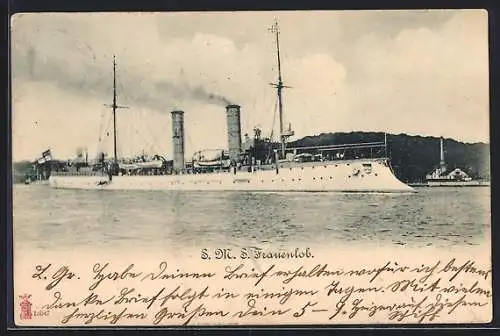 S. M. S. Frauenlob.
L. Gr. Habe Deinen Brief erhalten worfür ich bestens
danke Brief folgt in einigen Tagen. Mit vielen
herzlichen Grüßen Dein
Schiff